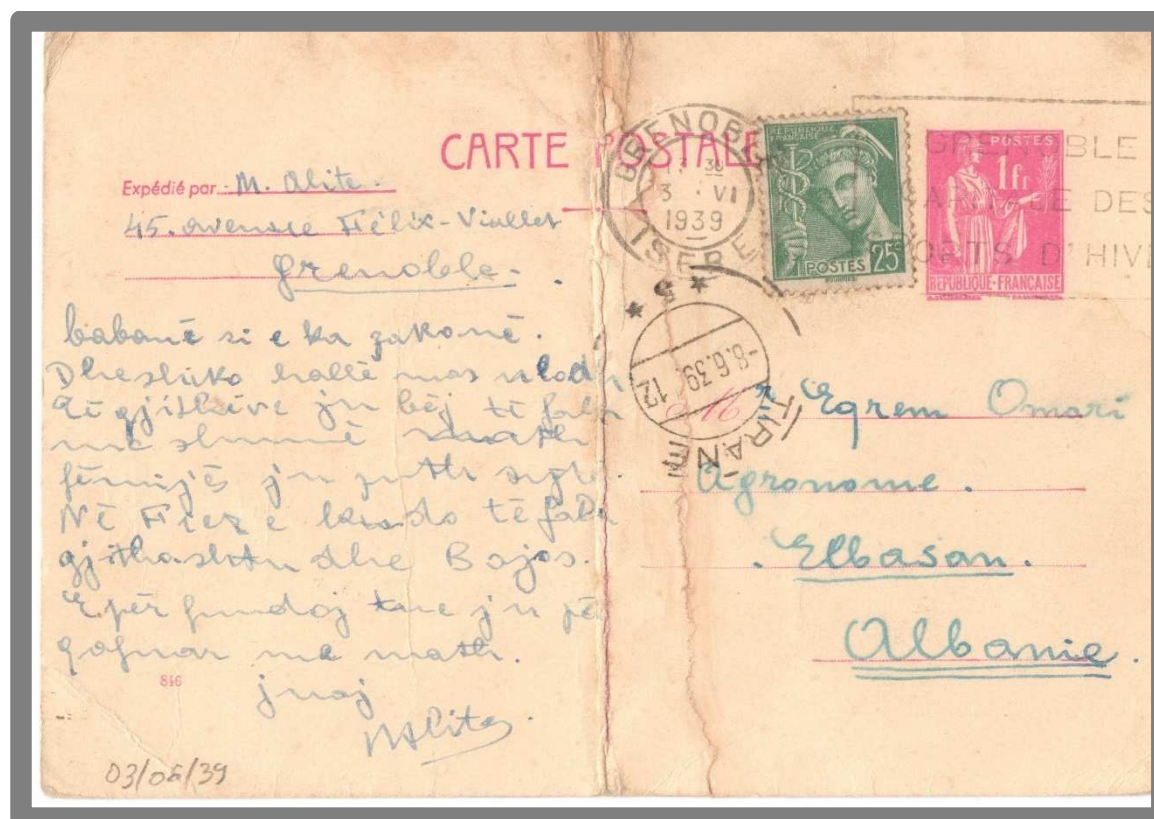 CARTE POSTALE
Expédié par M. Alite.
45. avenue Félix-Viallet
Grenoble.
babanë si e ka zakonë.
Dhe shiko hallë mos
gjithëve ju bëj të fala
me shumë mall
fëmijës ju puth sytë.
Në Fier e kudo të fala
gjithashtu dhe Bajos.
E përfundoj tue ju për
qafuar me mall.
juaj
MAlite
846
03/06/39
GRENOBLE
30
3 VI
1939
ISERE
RÉPUBLIQUE FRANÇAISE
POSTES 25c
POSTES
1fr
RÉPUBLIQUE·FRANÇAISE
GRENOBLE
DES
D'HIVE
TIRANË
-8.6.39. 12
5
M
Eqrem Omari
Agronome.
Elbasan.
Albanie.